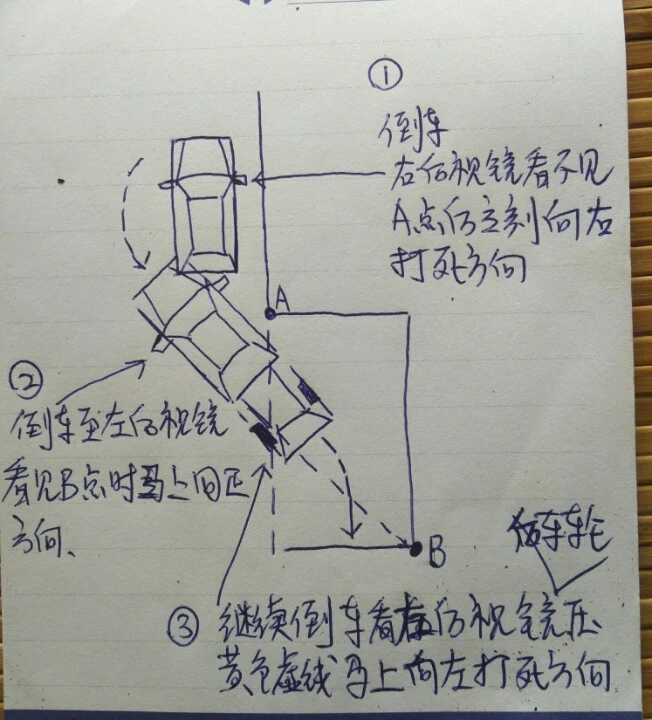 ①
倒车
右后视镜看不见
A点后立刻向右
打死方向
A
②
倒车至左后视镜
看见B点时马上回正
方向、
B
后车轮
③ 继续倒车看左后视镜压
黄色虚线马上向左打死方向